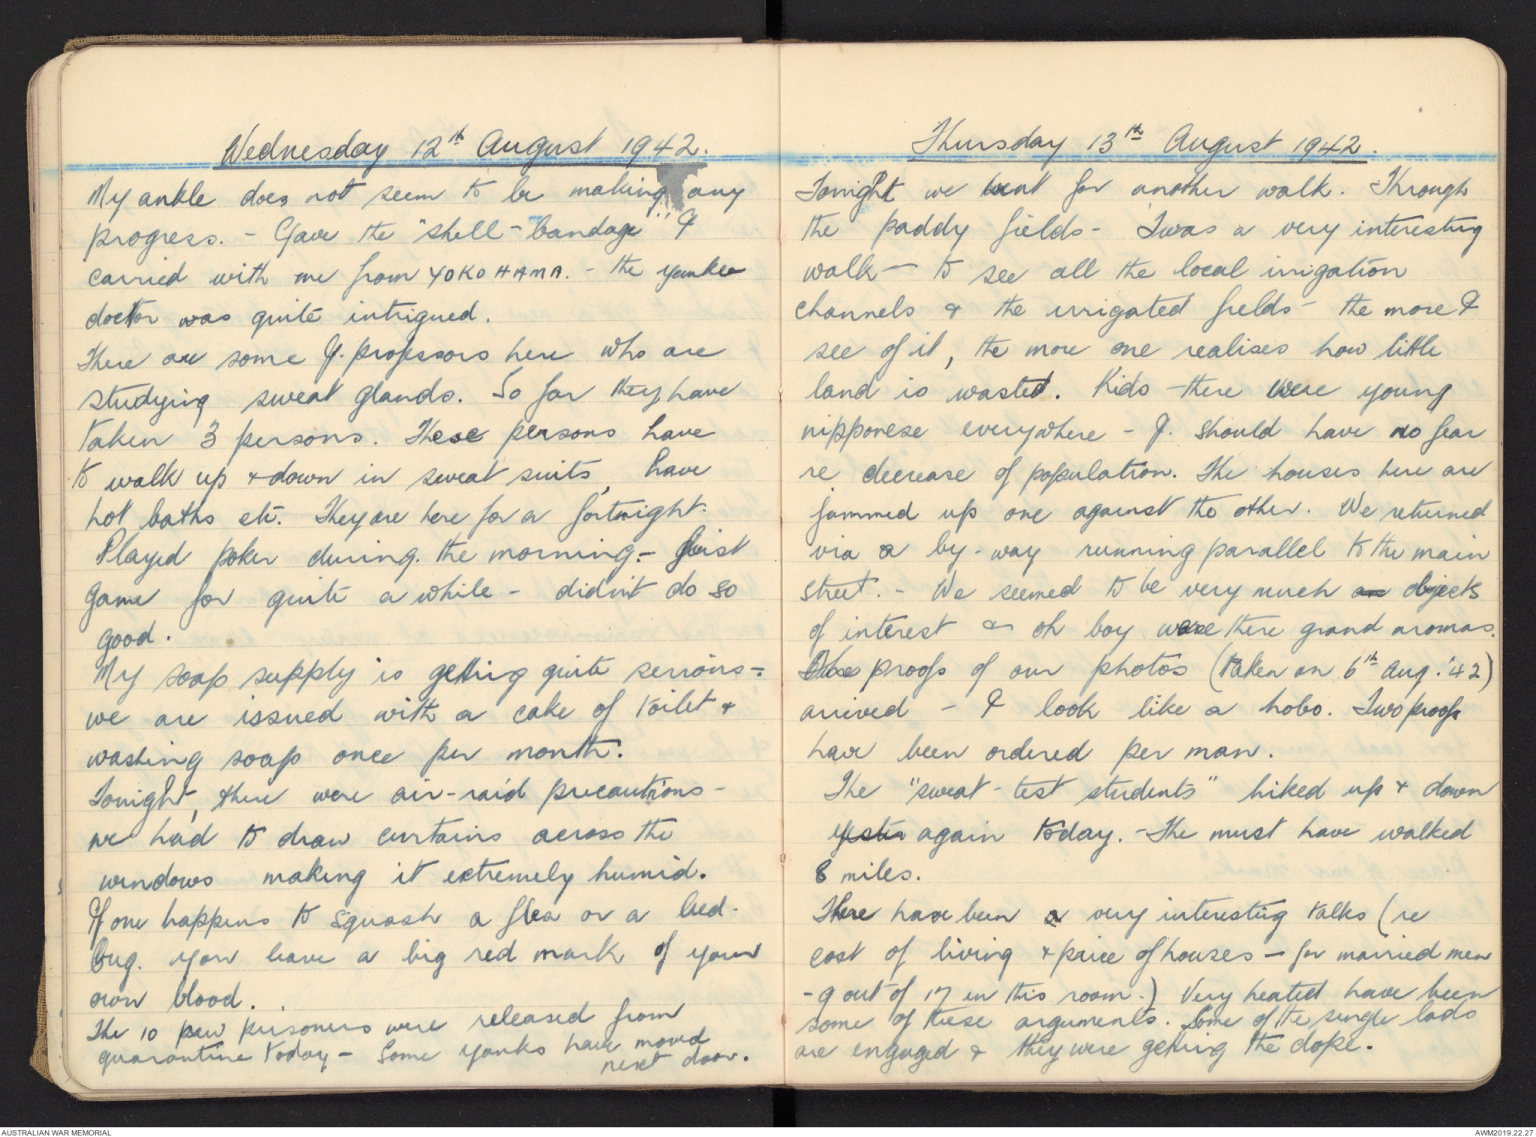 Wednesday 12th August 1942.
My ankle does not seem to be making any
progress. - Gave the "shell-bandage" I
carried with me from YOKOHAMA. - the yankee
doctor was quite intrigued.
There are some J. professors here who are
studying sweat glands. So far they have
taken 3 persons. These persons have
to walk up & down in sweat suits, have
hot baths etc. They are here for a fortnight.
Played poker during the morning - first
game for quite a while - didn't do so
good.
My soap supply is getting quite serious -
we are issued with a cake of toilet &
washing soap once per month.
Tonight, there were air-raid precautions -
we had to draw curtains across the
windows making it extremely humid.
If one happens to squash a flea or a bed-
bug. you leave a big red mark of your
own blood.
The 10 new prisoners were released from
quarantine today - Some yanks have moved
next door.
Thursday 13th August 1942.
Tonight we went for another walk. Through
the paddy fields - Twas a very interesting
walk - to see all the local irrigation
channels & the irrigated fields - the more I
see of it, the more one realises how little
land is wasted. Kids - there were young
nipponese everywhere - J. should have no fear
re decrease of population. The houses here are
jammed up one against the other. We returned
via a by-way running parallel to the main
street. - We seemed to be very much objects
of interest & oh boy were there grand aromas.
The proofs of our photos (taken on 6th Aug. '42)
arrived - I look like a hobo. Two proofs
have been ordered per man.
The "sweat-test students" hiked up & down
yester again today. - The must have walked
8 miles.
There have been a very interesting talks (re
cost of living & price of houses - for married men
- 9 out of 17 in this room.) Very heated have been
some of these arguments. Some of the single lads
are engaged & they were getting the dope.
AUSTRALIAN WAR MEMORIAL
AWM2019.22.27